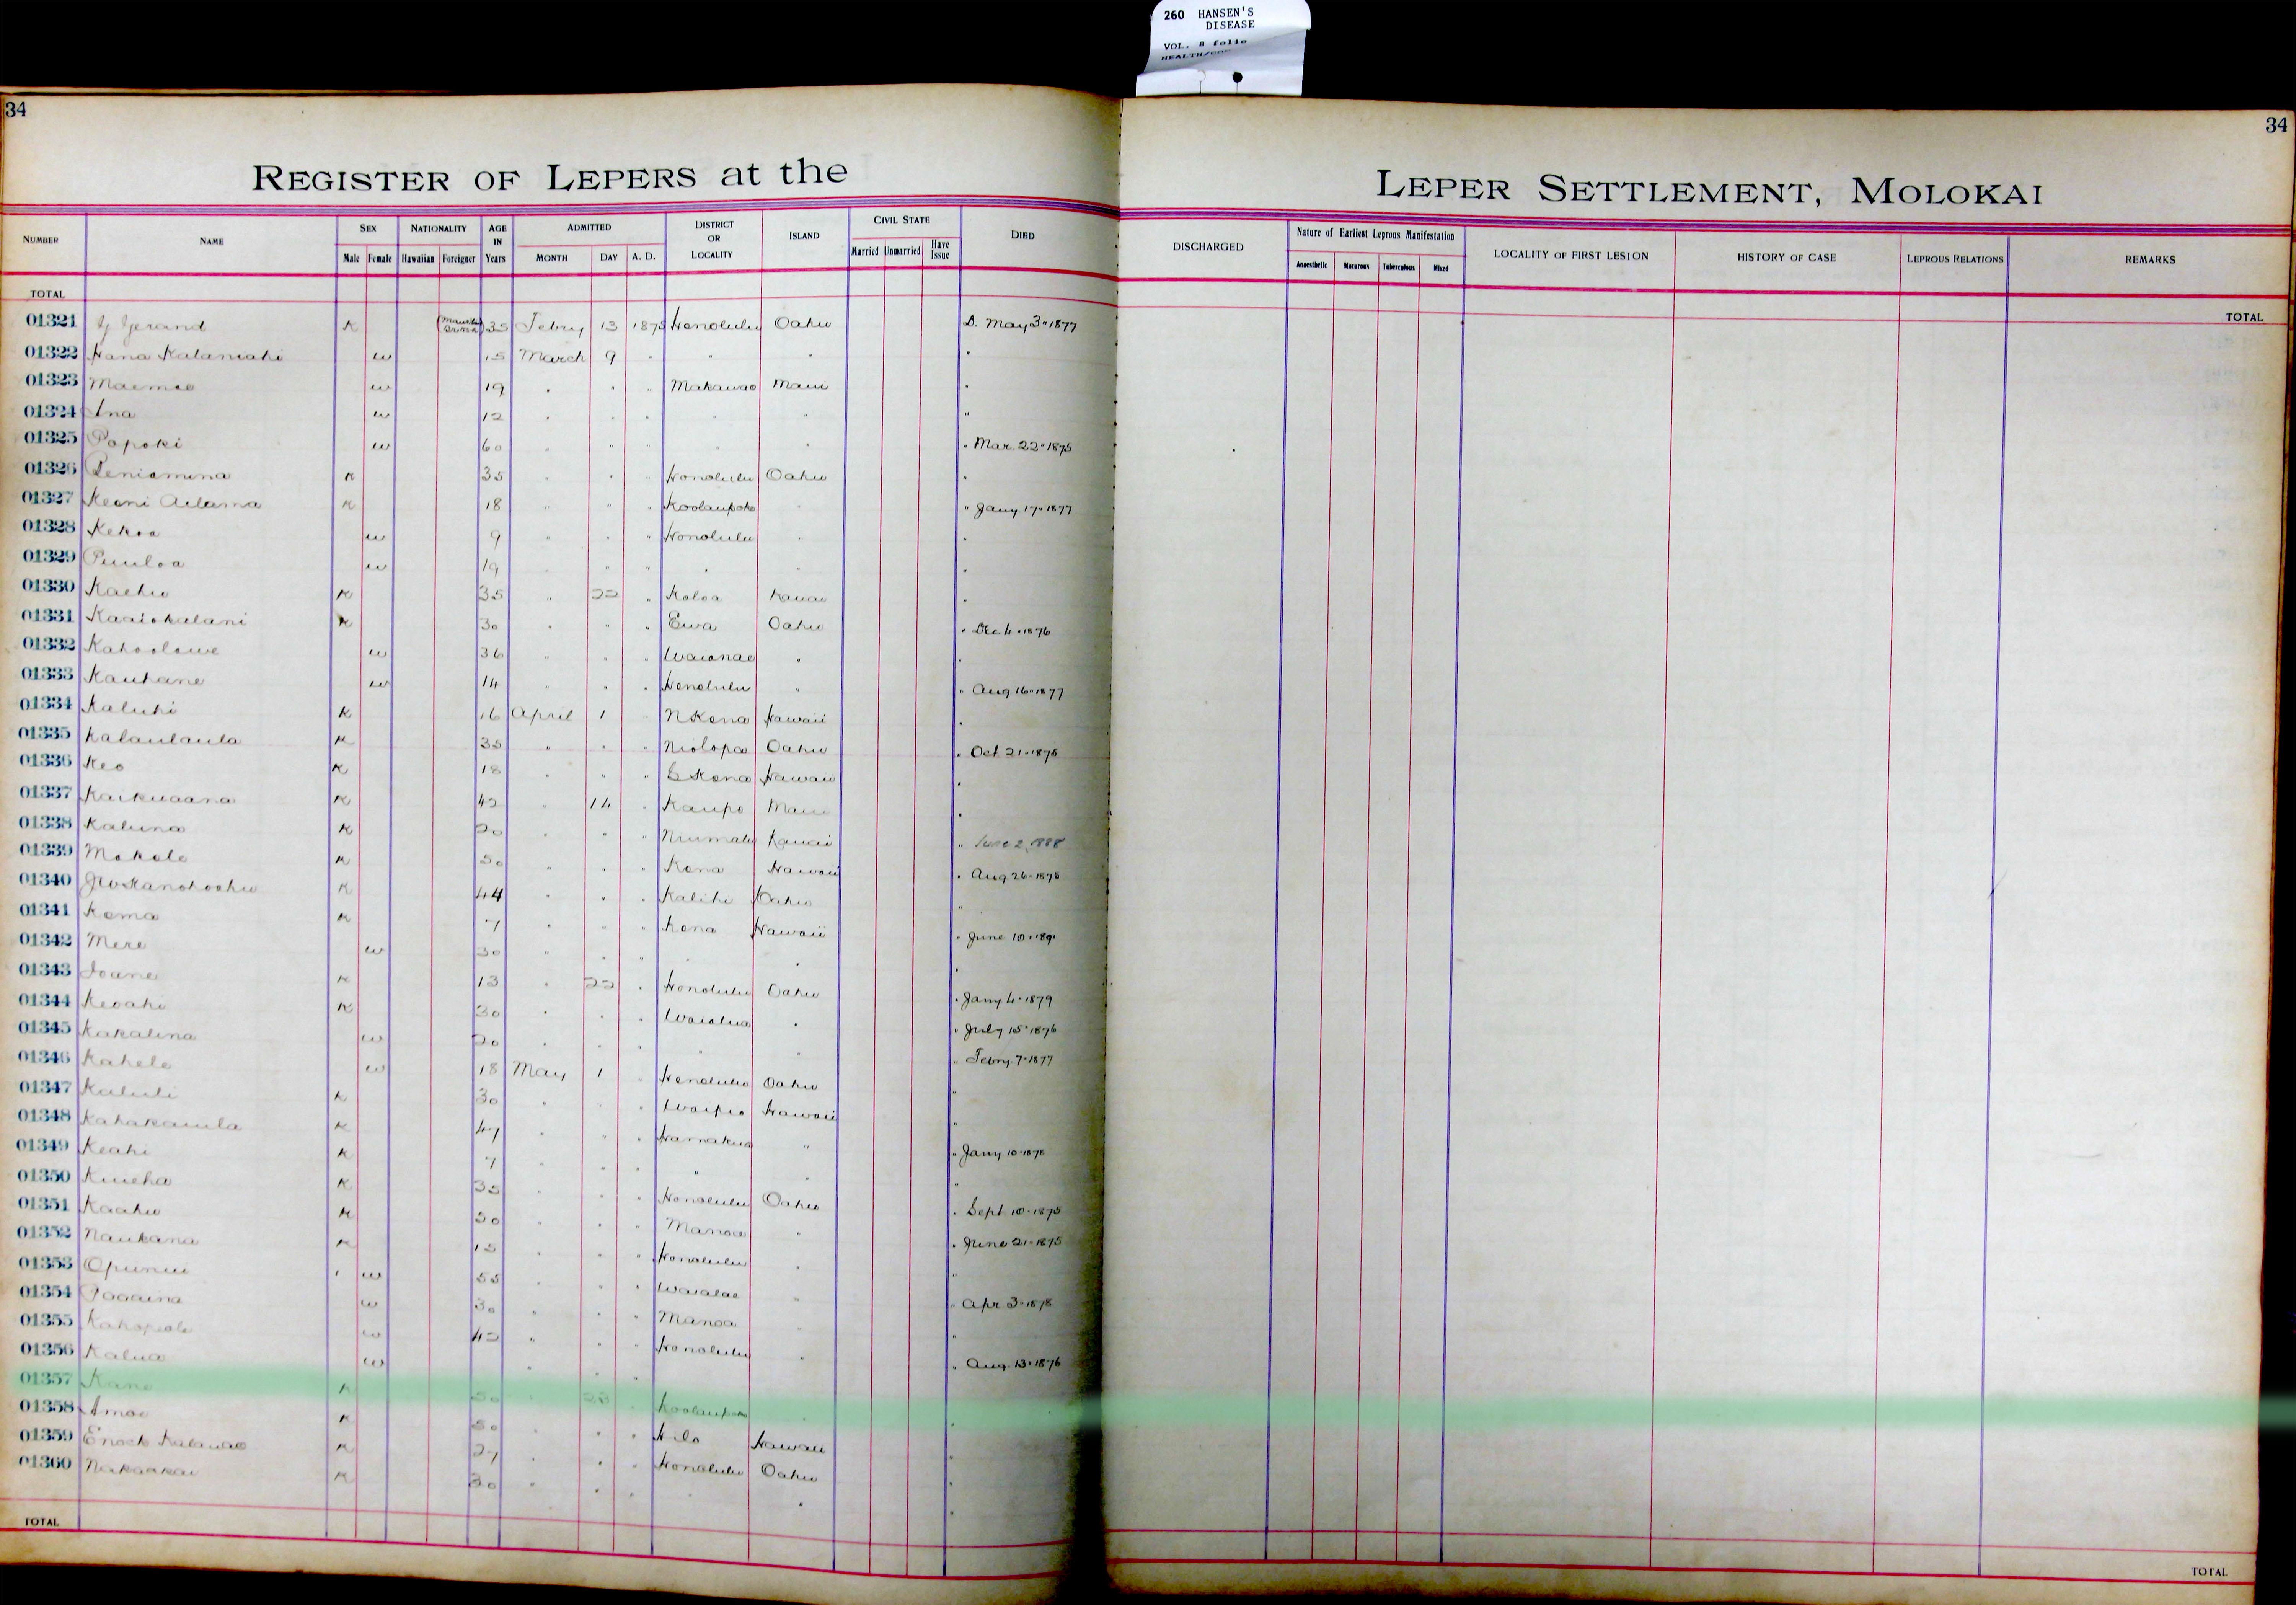 260 HANSEN'S
DISEASE
VOL. 8 folio
34
34
REGISTER OF LEPERS at the
LEPER SETTLEMENT, MOLOKAI
NUMBER NAME SEX Male Female NATIONALITY Hawaiian Foreigner AGE IN Years ADMITTED MONTH DAY A. D. DISTRICT OR LOCALITY ISLAND CIVIL STATE Married Unmarried Have Issue DIED
DISCHARGED Nature of Earliest Leprous Manifestation Anaesthetic Macurous Tuberculous Mixed LOCALITY OF FIRST LESION HISTORY OF CASE LEPROUS RELATIONS REMARKS
TOTAL
TOTAL
01321 Gerand K 35 Febry 13 1875 Honolulu Oahu D. May 3" 1877
01322 Hana Kalaniahi w 15 March 9 " " " "
01323 Maemae w 19 " " " Makawao Maui "
01324 Ana w 12 " " " " " "
01325 Popoki w 60 " " " " " " Mar. 22" 1875
01326 Peniamina K 35 " " " Honolulu Oahu "
01327 Keoni Adama K 18 " " " Koolaupoko " " Jany 17" 1877
01328 Kekoa w 9 " " " Honolulu " "
01329 Puuloa w 19 " " " " " "
01330 Kaehu K 35 " 22 " Koloa Kauai "
01331 Kaaiokalani K 30 " " " Ewa Oahu " Dec 4" 1876
01332 Kahoolawe w 36 " " " Waianae " "
01333 Kauhane w 14 " " " Honolulu " " Aug 16" 1877
01334 Kaluhi K 16 April 1 " N Kona Hawaii "
01335 Kalaulaula K 35 " " " Niolopa Oahu " Oct 21" 1875
01336 Keo K 18 " " " S Kona Hawaii "
01337 Kaikuaana K 42 " 14 " Kaupo Maui "
01338 Kaluna K 20 " " " Niumalu Kauai " June 2, 1888
01339 Makole K 50 " " " Kona Hawaii " Aug 26" 1878
01340 JW Kanohoohu K 44 " " " Kalihi Oahu "
01341 Koma K 7 " " " Kona Hawaii " June 10" 1891
01342 Mere w 30 " " " " " "
01343 Ioane K 13 " 22 " Honolulu Oahu " Jany 4" 1879
01344 Keoahi K 30 " " " Waialua " " July 15" 1876
01345 Kakalina w 20 " " " " " " Febry. 7" 1877
01346 Kahele w 18 May 1 " Honolulu Oahu "
01347 Kaluli K 30 " " " Waipio Hawaii "
01348 Kahakauila K 47 " " " Hamakua " " Jany 10" 1878
01349 Keahi K 7 " " " " " "
01350 Kuueha K 35 " " " Honolulu Oahu " Sept. 10" 1875
01351 Kaahu K 50 " " " Manoa " " June 21" 1875
01352 Naukana K 15 " " " Honolulu " "
01353 Opunui w 55 " " " Waialae " " Apr 3" 1878
01354 Paaaina w 30 " " " Manoa " "
01355 w 42 " " " Honolulu " " Aug. 13" 1876
01356 Kalua w " " "
01357 Kane K 50 " 23 " Koolaupoko " "
01358 Amoe K 50 " " " Hilo Hawaii "
01359 Enoch Kalauao K 27 " " " Honolulu Oahu "
01360 Nakaakai K 30 " " " " " "
TOTAL
TOTAL